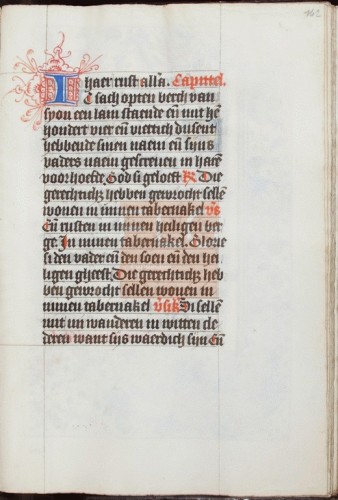 162
haer rust alla. Capittel.
Ic sach opten berch van
syon een lam staende eñ mit hē
hondert vier eñ viertich dusent
hebbende sinen naem eñ sijns
vaders naem gescreven in haren
voorhoefde. God si geloeft R. Die
gerechtichz hebben gewrocht selle
wonen in minen tabernakel vs
Eñ rusten in minen heiligen ber
ge. In minen tabernakel. Glorie
si den vader eñ den soen eñ den hei
ligen gheest. Die gerechtichz heb
ben gewrocht sellen wonen in
minen tabernakel Si sellē
mit mi wanderen in witten cle
deren want sijs waerdich sijn Eñ